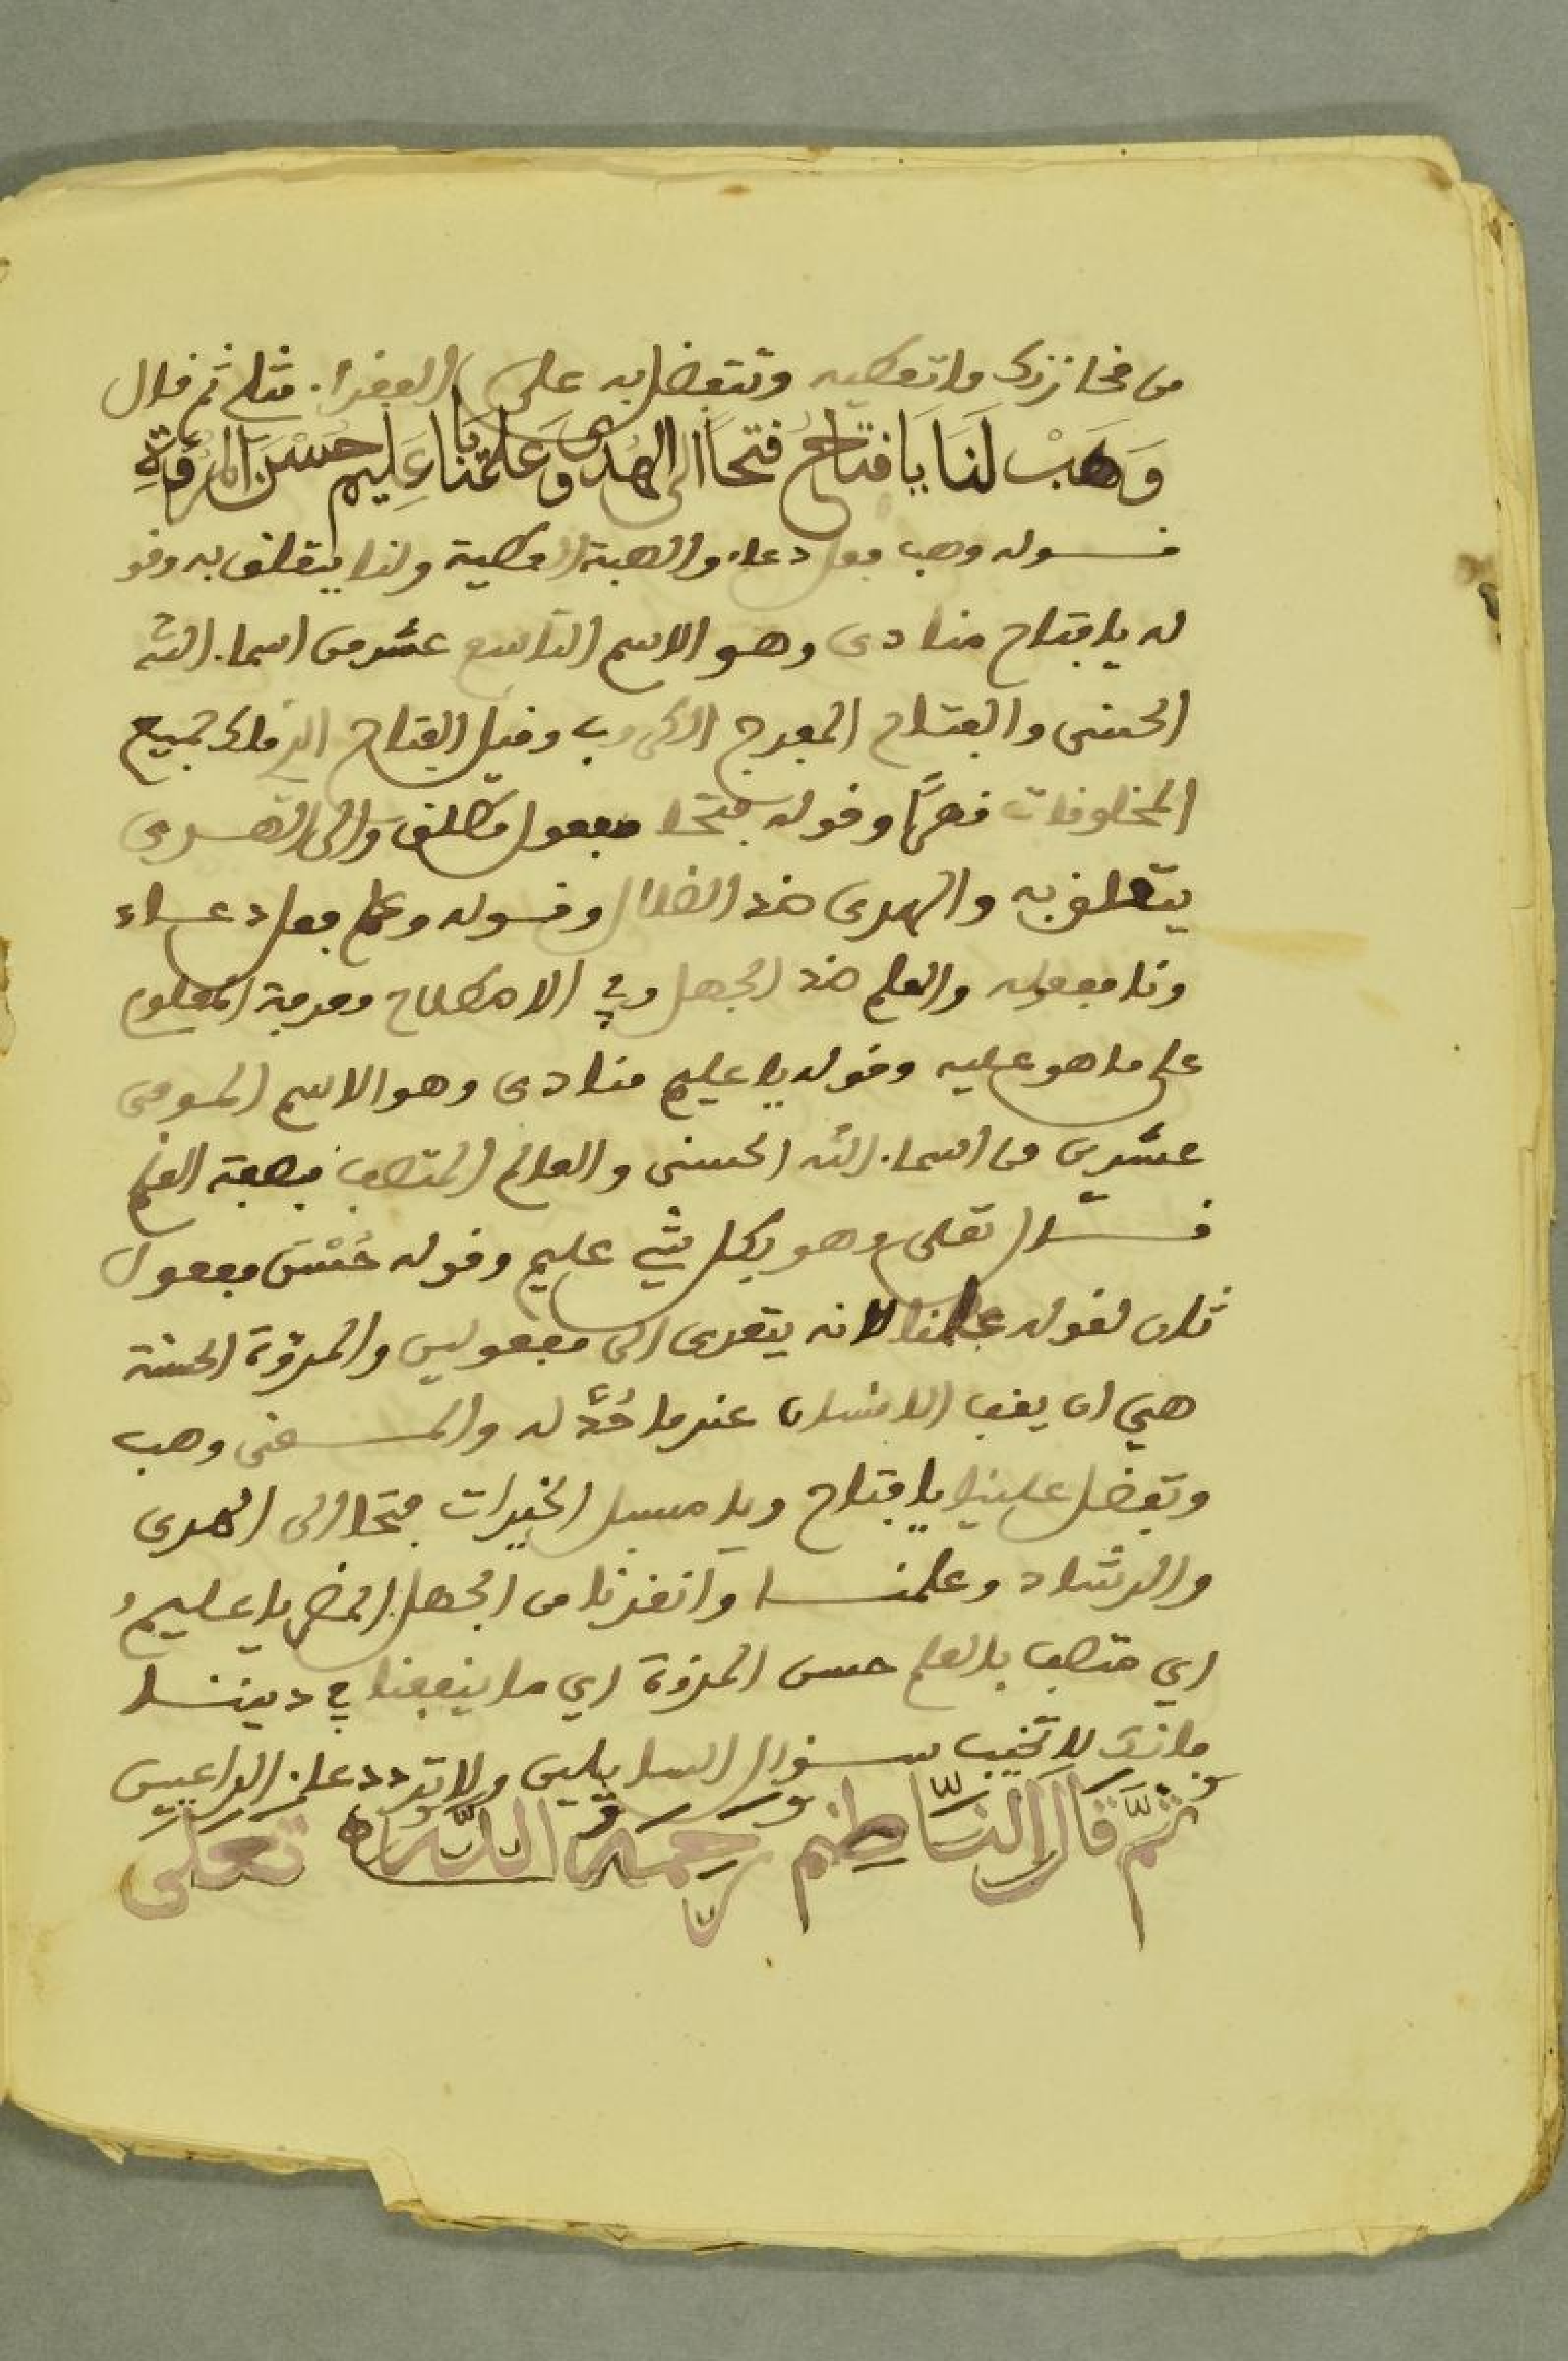 من مخازنك ما تعطيه وتتفضل به على الفقراء مثلي ثم قال
وَهَبْ لَنَا يَا فتاحُ فتحاً الى الهُدى وَعَلمنا يا عَلِيم حُسْنَ المرُوَّةِ
قوله وهب فعل دعاء والهبة العطية ولنا يتعلق به وقو
له يا فتاح منادى وهو الاسم التاسع عشر من اسماء الله
الحسنى والفتاح المفرج الكروب وقيل الفتاح الذي ملك جميع
المخلوقات قهرًا وقوله فتحا مفعول مطلق والى الهدى
يتعلق به والهدى ضد الضلال وقوله وعلم فعل دعاء
ونا مفعوله والعلم ضد الجهل وفي الاصطلاح معرفة المعلوم
على ما هو عليه وقوله يا عليم منادى وهو الاسم الموفى
عشرين من اسماء الله الحسنى والعالم المتصف بصفة العلم
قال تعلى وهو بكل شيء عليم وقوله حُسْنَ مفعول
ثان لقوله علمنا لانه يتعدى الى مفعولين والمروّة الحسنة
هي ان يقف الانسان عندما حُدَّ له والمعنى وهب
وتفضل علينا يا فتاح ويا مسبل الخيرات فتحا الى الهدى
والرشاد وعلمنا وانقذنا من الجهل المضر يا عليم
اي متصف بالعلم حسن المروة اي ما ينفعنا في ديننا
فانك لا تخيب سؤال السايلين ولا تردد دعاء الداعيين
ثمَّ قَالَ النَّاظِم رَحِمَهُ اللَّهُ تَعَلَى